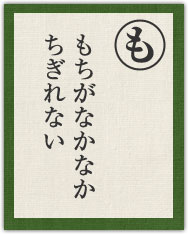 も
もちがなかなか
ちぎれない